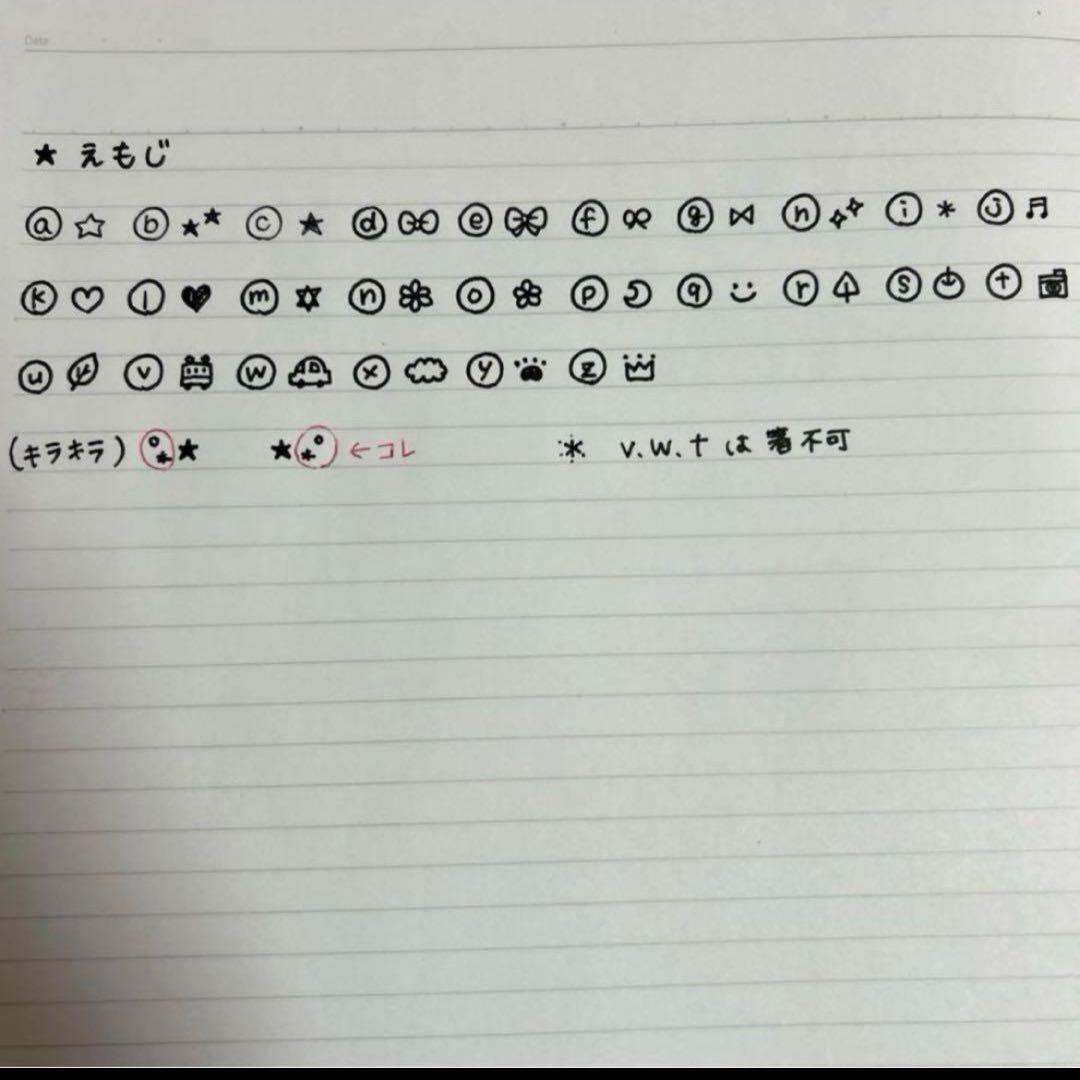 Date
★ えもじ
ⓐ ☆ ⓑ ★★ ⓒ ★ ⓓ ⓔ ⓕ ⓖ ⋈ ⓗ ⓘ * ⓙ ♬
ⓚ ♡ ⓛ ♥ ⓜ ⓝ ⓞ ⓟ ⓠ ⓡ ⓢ ⓣ
ⓤ ⓥ ⓦ ⓧ ⓨ ⓩ
(キラキラ) ★ ★ ←コレ ※ v.w.tは箸不可